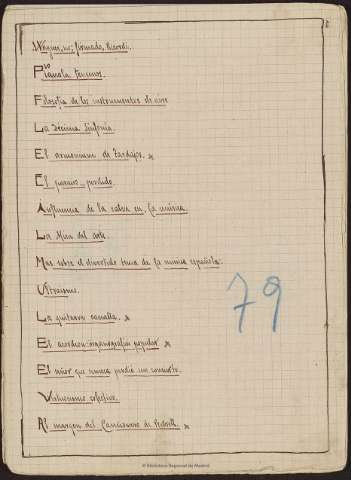 Wagner, no; firmado, Ricordi.
Pianola tenemos.
Filosofía de los instrumentos de aire
La décima sinfonía.
El armonium de Tardajos. *
El paraiso perdido.
de la cabra en la música
La Mina del arte.
Mas sobre el divertido tema de la musica española.
Ultraismo.
La guitarra canalla. *
79
El acordeon: organografía popular *
El señor que nunca perdió un concierto.
Virtuosismo colectivo.
Al margen del Cancionero de Pedrell. *
© Biblioteca Regional de Madrid